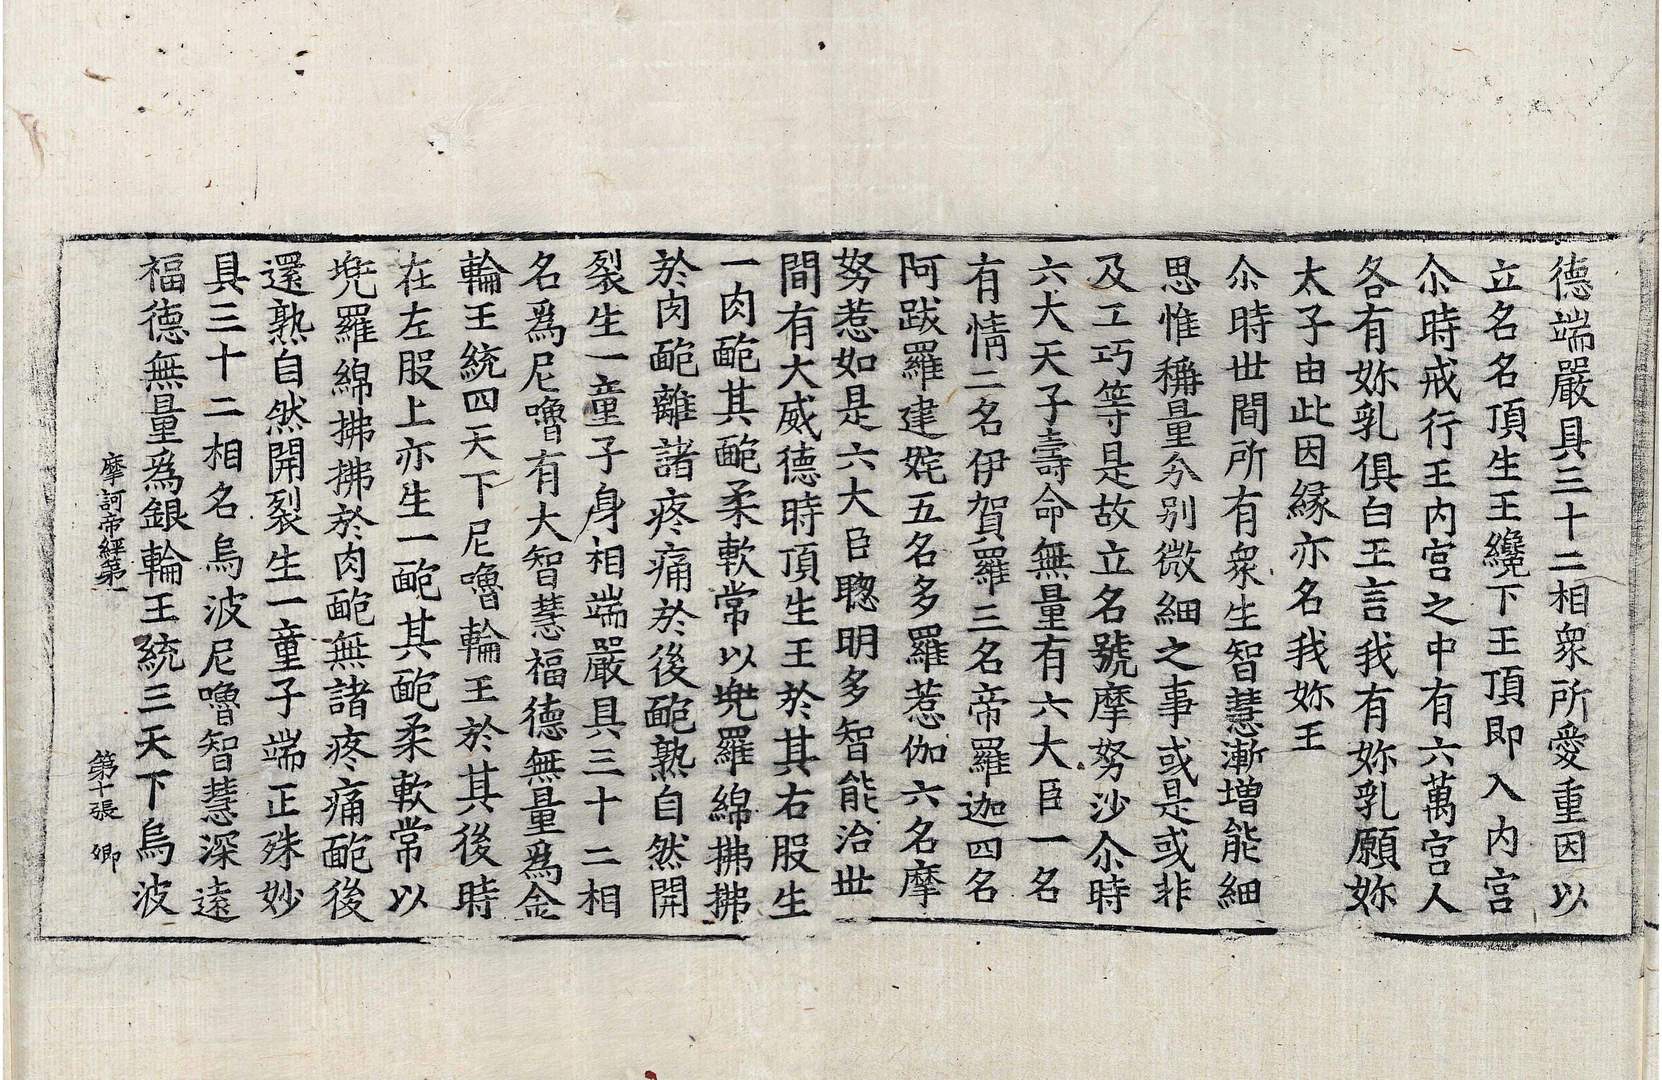 德端嚴具三十二相衆所愛重因以
立名名頂生王纔下王頂即入内宫
尒時戒行王内宫之中有六萬宫人
各有妳乳俱白王言我有妳乳願妳
太子由此因縁亦名我妳王
尒時世間所有衆生智慧漸增能細
思惟稱量分别微細之事或是或非
及工巧等是故立名號摩努沙尒時
六大天子壽命無量有六大臣一名
有情二名伊賀羅三名帝羅迦四名
阿跋羅建姹五名多羅惹伽六名摩
努惹如是六大臣聰明多智能治世
間有大威德時頂生王於其右股生
一肉皰其皰柔軟常以兠羅綿拂拂
於肉皰離諸疼痛於後皰熟自然開
裂生一童子身相端嚴具三十二相
名爲尼嚕有大智慧福德無量爲金
輪王統四天下尼嚕輪王於其後時
在左股上亦生一皰其皰柔軟常以
兠羅綿拂拂於肉皰無諸疼痛皰後
還熟自然開裂生一童子端正殊妙
具三十二相名烏波尼嚕智慧深遠
福德無量爲銀輪王統三天下烏波
摩訶帝經第一 第十張 卿